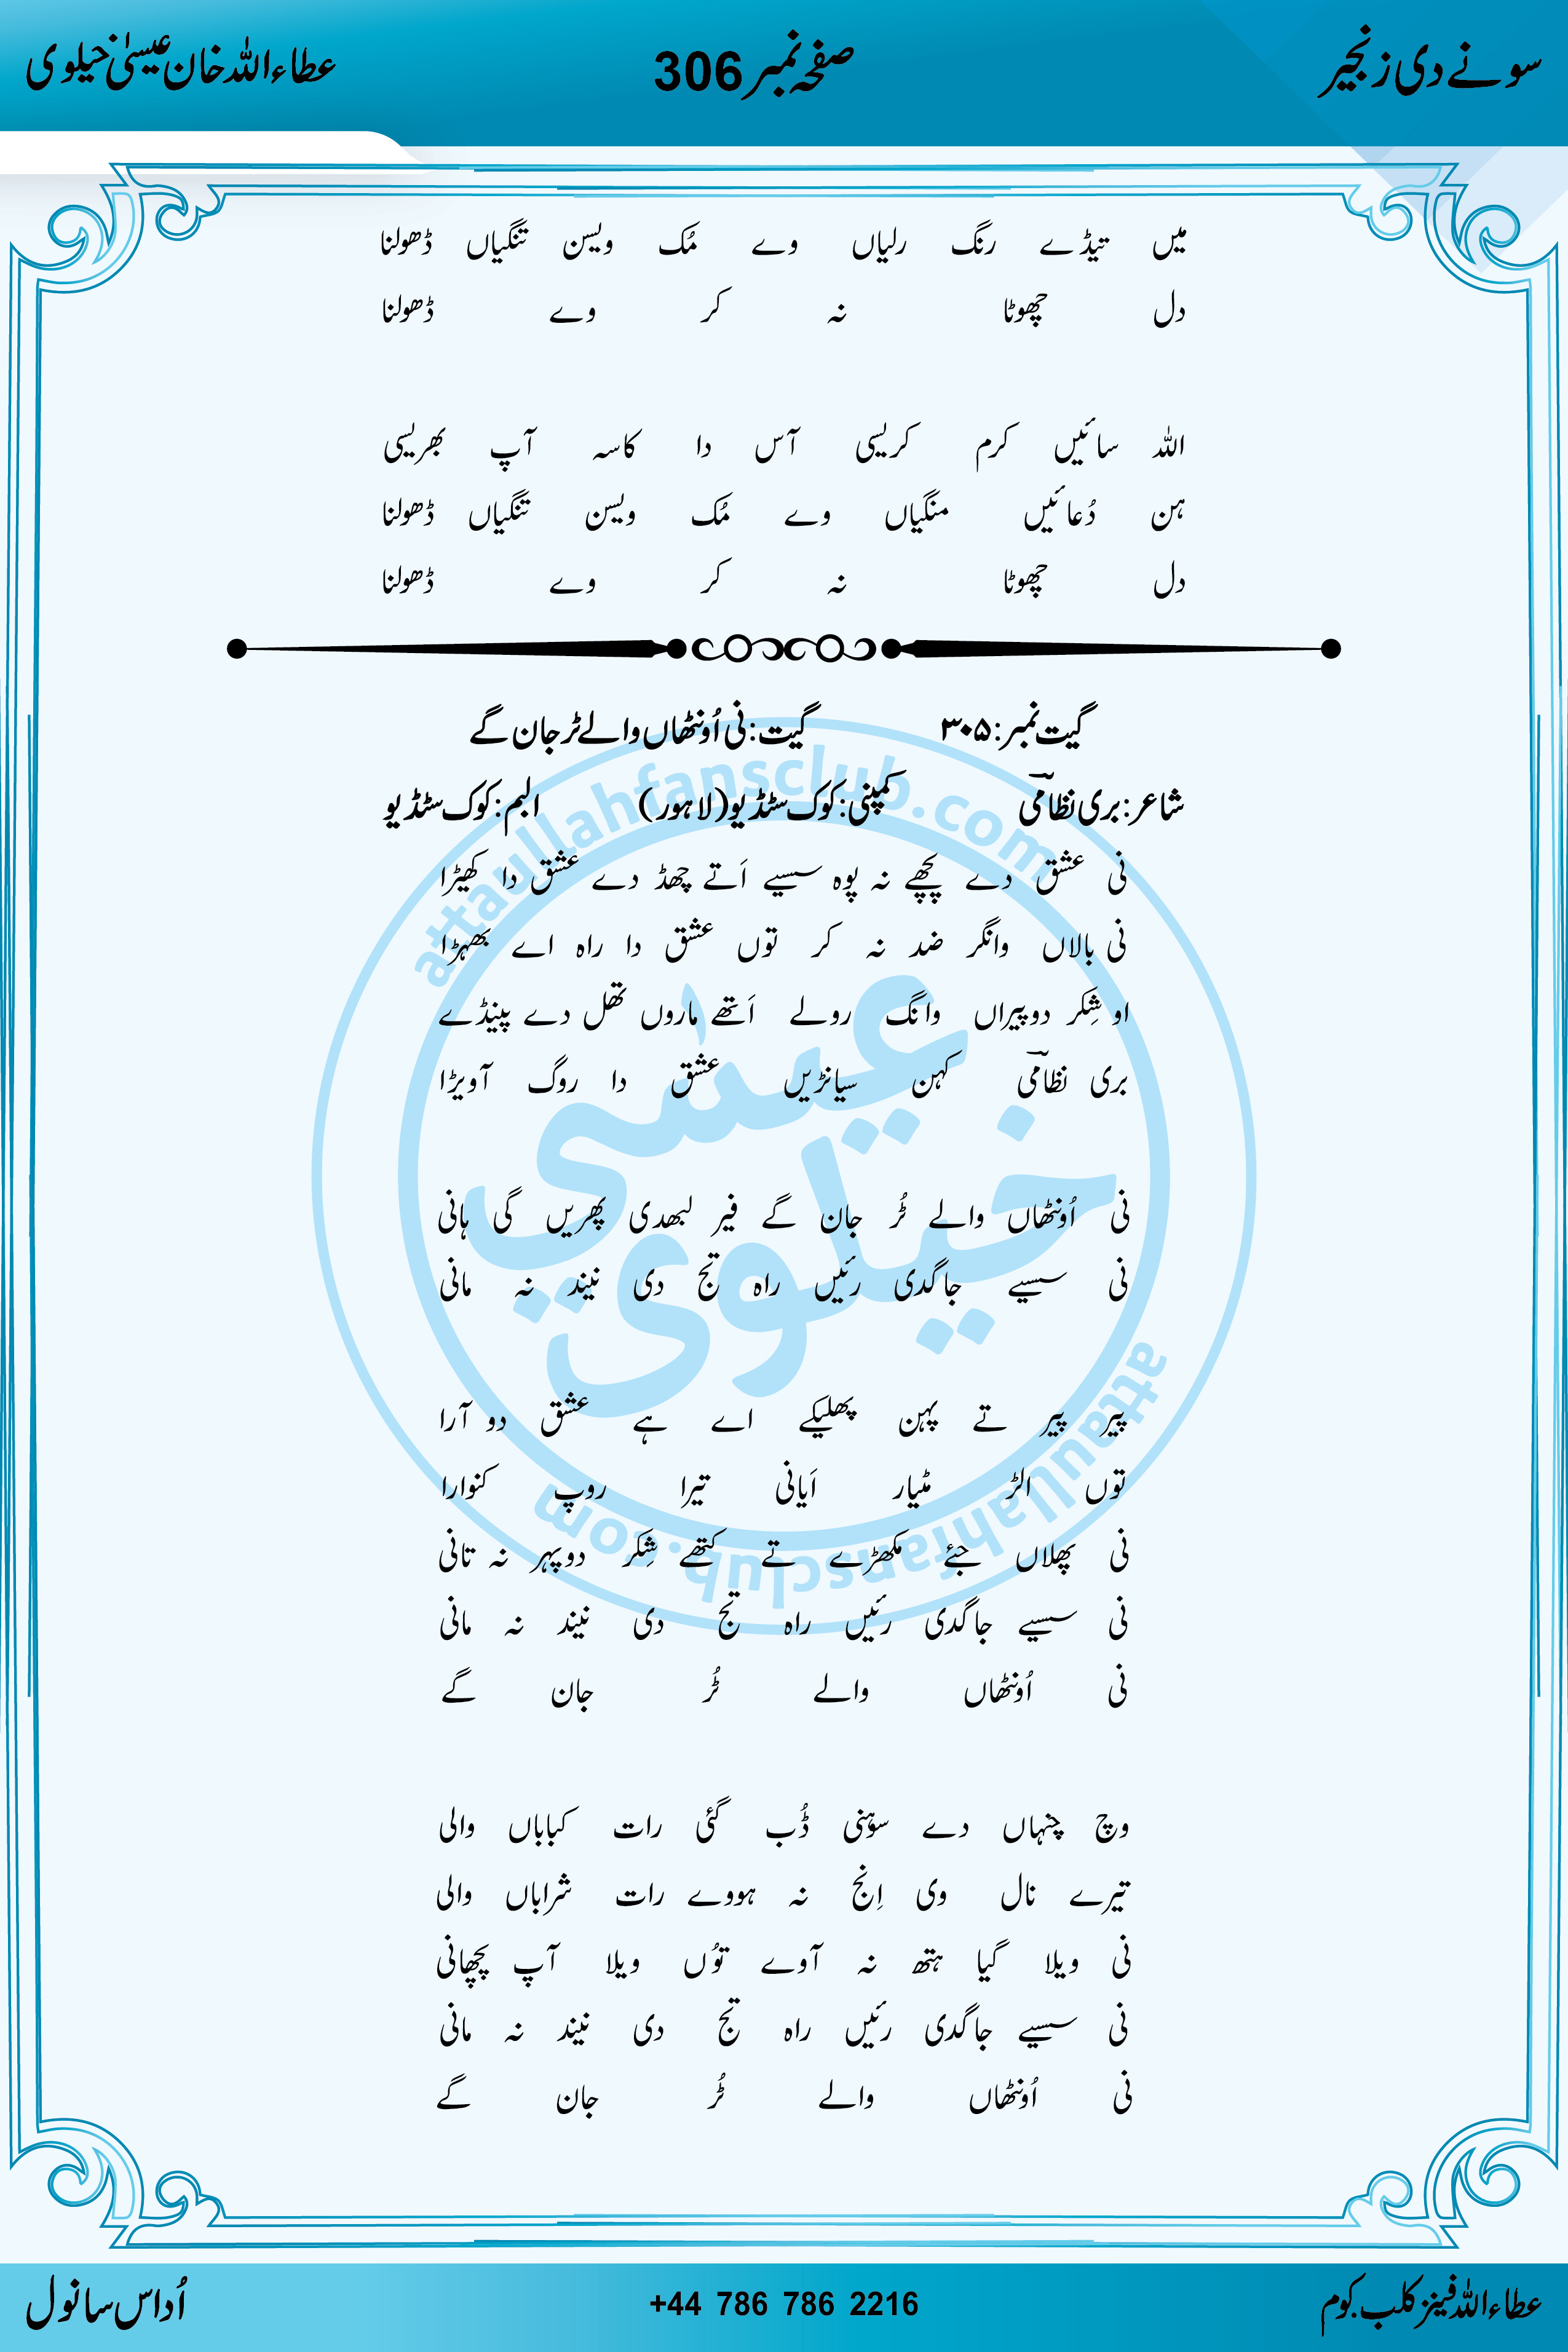 سونے دی زنجیر صفحہ نمبر 306 عطاءاللہ خان عیسیٰ خیلوی
میں تیڈے رنگ رلیاں وے مُک ویسن تنگیاں ڈھولنا
دل چھوٹا نہ کر وے ڈھولنا
اللہ سائیں کرم کریسی آس دا کاسہ آپ بھریسی
ہن دُعائیں منگیاں وے مُک ویسن تنگیاں ڈھولنا
دل چھوٹا نہ کر وے ڈھولنا
گیت نمبر: ۳۰۵ گیت: نی اُونٹھاں والے ٹر جان گے
شاعر: بری نظامیؔ کمپنی: کوک سٹڈیو (لاہور) البم: کوک سٹڈیو
نی عشق دے پچھے نہ پوہ سسیے اَتے چھڈ دے عشق دا کھیڑا
نی بالاں وانگر ضد نہ کر توں عشق دا راہ اے بھہڑا
او شِکر دوپیراں وانگ رولے اَتھے ماروں تھل دے پینڈے
بری نظامیؔ کہن سیانڑیں عشق دا روگ آویڑا
نی اُونٹھاں والے ٹُر جان گے فیر لبھدی پھریں گی ہانی
نی سسیے جاگدی رئیں راہ تج دی نیند نہ مانی
پیر پیر تے پہن پھلیکے اے ہے عشق دو آرا
توں الڑ مٹیار اَیانی تیرا روپ کنوارا
نی پھلاں جئے مکھڑے تے کتھے شِکر دوپہر نہ تانی
نی سسیے جاگدی رئیں راہ تج دی نیند نہ مانی
نی اُونٹھاں والے ٹُر جان گے
وچ چنہاں دے سوہنی ڈُب گئی رات کباباں والی
تیرے نال وی اِنج نہ ہووے رات شراباں والی
نی ویلا گیا ہتھ نہ آوے توُں ویلا آپ پچھانی
نی سسیے جاگدی رئیں راہ تج دی نیند نہ مانی
نی اُونٹھاں والے ٹُر جان گے
attaullahfansclub.com
عیسٰی
خیلوی
attaullahfansclub.com
عطاءاللہ فینز کلب.کوم +44 786 786 2216 اُداس سانول